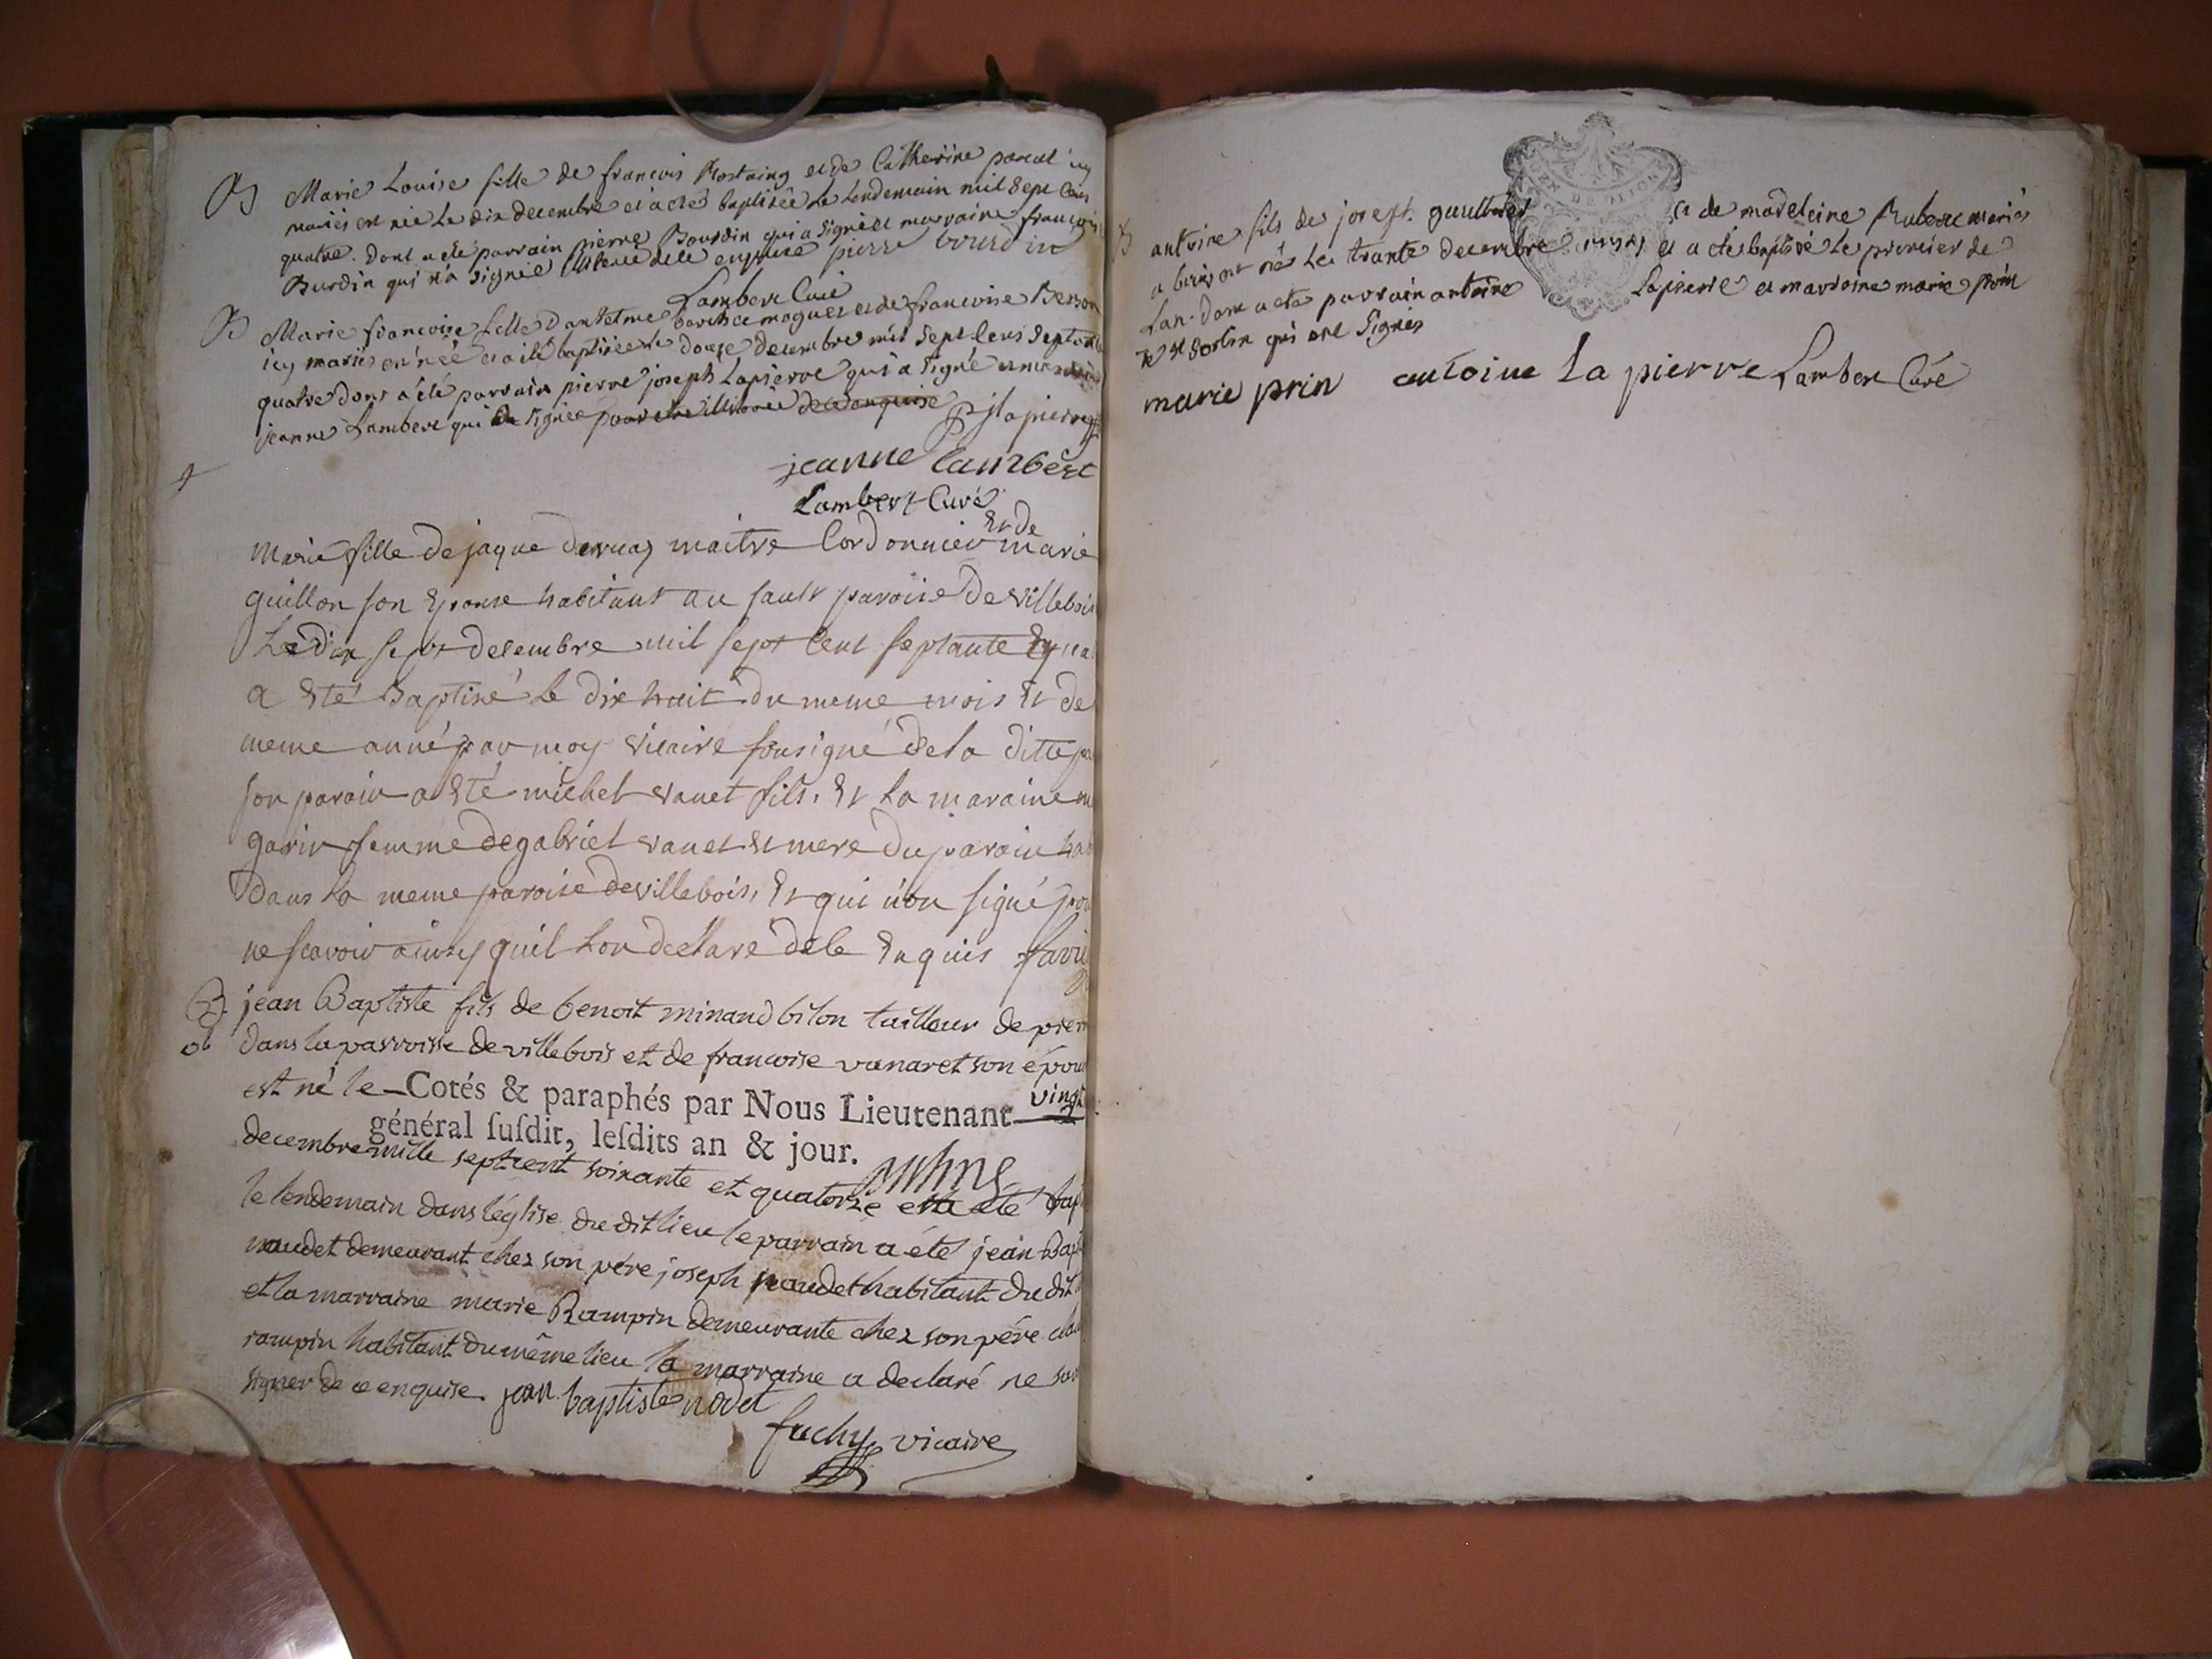 B Marie Louise fille de francois Rostaing et de Catherine pascal icy
mariés est née le dix decembre et a été baptisée le lendemain mil Sept Cens
quatre. dont a été parrain pierre Bourdin qui a Signé et marraine francoise
Burdin qui n'a Signé illiterée de ce enquise pierre bourdin
Lambert Curé
B Marie francoise fille d'antelme et de francoise Besson
icy mariés est née et a été baptisée le douze decembre mil Sept Cens Septante
quatre dont a été parrain pierre joseph Lapierre qui a Signé et marraine
jeanne Lambert qui a Signée pour etre illiterée de ce enquise pjlapierre
jeanne lambert
Lambert Curé
et de
Marie fille de jaque dervaz maitre Cordonnier marie
guillon son Epouse habitant au sault paroise de villebois
Le dix sept decembre mil sept Cent septante & qua
a Eté Baptisé le dix huit du meme mois Et de
meme anné par moy vicaire sousigné de la ditte pa
son parain a Eté michel vanet fils, Et la maraine
garin femme de gabriel vanet Et mere du parain hab
dans la meme paroise de villebois, Et qui n'on signé pou
ne scavoir ainsy quil l'on declare de le Enquis favie
B. jean Baptiste fils de benoit minand bilon tailleur de pierr
ob dans la parroisse de villebois et de francoise vanaret son épous
est né le - Cotés & paraphés par Nous Lieutenant vingt
général ſuſdit, leſdits an & jour.
decembre mille sept cent soixante et quatorze et a été bap
le lendemain dans l'église du dit lieu le parrain a été jean Bapt
naudet demeurant chez son pére joseph naudet habitant du dit
et la marraine marie Rampin demeurante chez son pére clau
rampin habitant du même lieu la marraine a declaré ne sav
signer de ce enquise. jean baptiste nodet
fuchy vicaire
B antoine fils de joseph gaulthier et de madeleine mariés
est né le trante decembre et a été baptisé le premier de
Lan. dont a été parrain antoine Lapierre et marraine marie prin
de St Sorlin qui ont Signés
marie prin antoine la pierre Lambert Curé